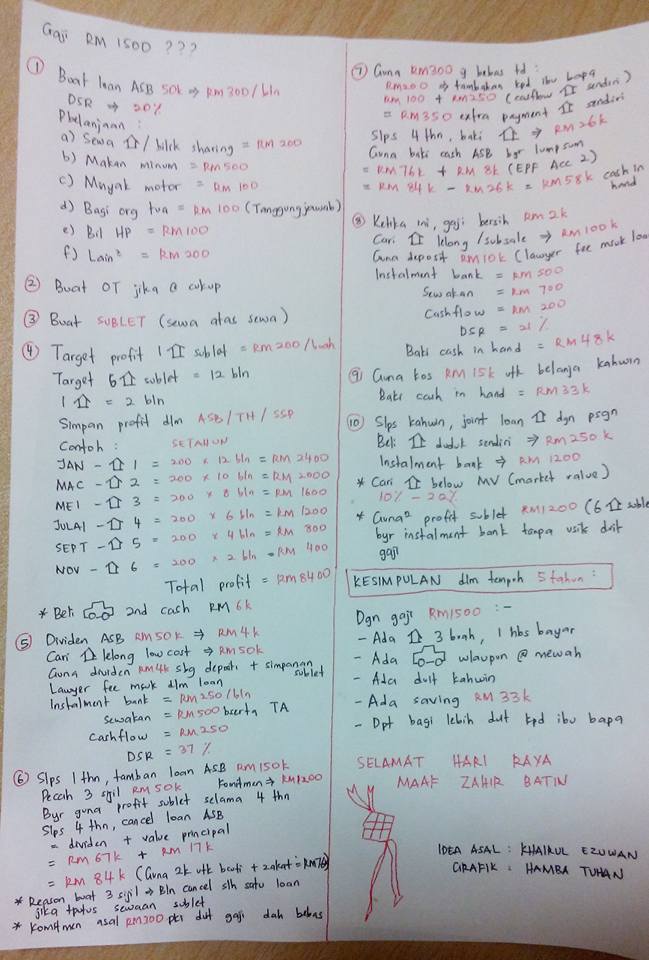 Gaji RM 1500 ???
① Buat loan ASB 50k ⇒ RM 300/bln
DSR ⇒ 20%
Pbelanjaan :
a) Sewa / bilik sharing = RM 200
b) Makan minum = RM 500
c) Minyak motor = RM 100
d) Bagi org tua = RM 100 (Tanggungjawab)
e) Bil HP = RM100
f) Lain² = RM 200
② Buat OT jika @ cukup
③ Buat SUBLET (sewa atas sewa)
④ Target profit 1 sublet = RM 200/buah
Target 6 sublet = 12 bln
1 = 2 bln
Simpan profit dlm ASB/TH/SSP
Contoh : SETAHUN
JAN - 1 = 200 x 12 bln = RM 2400
MAC - 2 = 200 x 10 bln = RM 2000
MEI - 3 = 200 x 8 bln = RM 1600
JULAI - 4 = 200 x 6 bln = RM 1200
SEPT - 5 = 200 x 4 bln = RM 800
NOV - 6 = 200 x 2 bln = RM 400
Total profit = RM 8400
* Beli 2nd cash RM 6k
⑤ Dividen ASB RM 50k ⇒ RM 4k
Cari lelong low cost ⇒ RM 50k
Guna dividen RM 4k sbg deposit + simpanan sublet
Lawyer fee msuk dlm loan
Instalment bank = RM 250/bln
Sewakan = RM 500 beserta TA
Cashflow = RM 250
DSR = 37 %
⑥ Slps 1 thn, tambah loan ASB RM 150k
Pecah 3 sijil RM 50k Komitmen ⇒ RM 1200
Byr guna profit sublet selama 4 thn
Slps 4 thn, cancel loan ASB
= dividen + value principal
= RM 67k + RM 17k
= RM 84k (Guna 2k utk + zakat =
* Reason buat 3 sijil ⇒ Bln cancel slh satu loan
jika tputus sewaan sublet
* Komitmen asal RM300 pki duit gaji dah bebas
⑦ Guna RM300 yg bebas td :
RM200 ⇒ tambahan kpd ibu bapa
RM 100 + RM250 (cashflow sendiri)
= RM350 extra payment sendiri
Slps 4 thn, baki ⇒ RM 26k
Guna baki cash ASB byr lumpsum
= RM 76k + RM 8k (EPF Acc 2)
= RM 84k - RM 26k = RM 58k cash in hand
⑧ Ketika ini, gaji bersih RM 2k
Cari lelong/subsale ⇒ RM 100k
Guna deposit RM 10k (lawyer fee msuk loan
Instalment bank = RM 500
Sewakan = RM 700
Cashflow = RM 200
DSR = 21 %
Baki cash in hand = RM 48k
⑨ Guna kos RM 15k utk belanja kahwin
Baki cash in hand = RM 33k
⑩ Slps kahwin, joint loan dgn psgn
Beli duduk sendiri ⇒ RM 250 k
Instalment bank ⇒ RM 1200
* Cari below MV (market value)
10% - 20%
* Guna² profit sublet RM1200 (6 sublet
byr instalment bank tanpa usik duit
gaji
KESIMPULAN dlm tempoh 5 tahun :
Dgn gaji RM1500 :-
- Ada 3 buah, 1 hbs bayar
- Ada wlaupun @ mewah
- Ada duit kahwin
- Ada saving RM 33k
- Dpt bagi lebih duit kpd ibu bapa
SELAMAT HARI RAYA
MAAF ZAHIR BATIN
IDEA ASAL : KHAIRUL EZUWAN
GRAFIK : HAMBA TUHAN